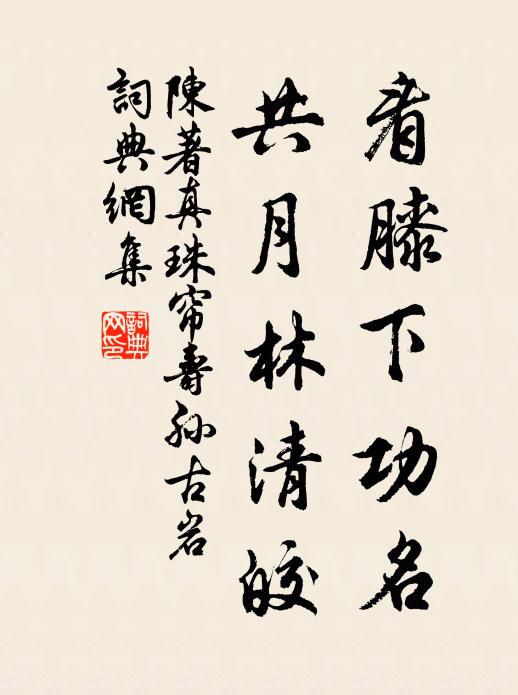 看膝下功名
共月林清皎
陳著真珠帘壽孙古岩
詞典網集
詞典网印